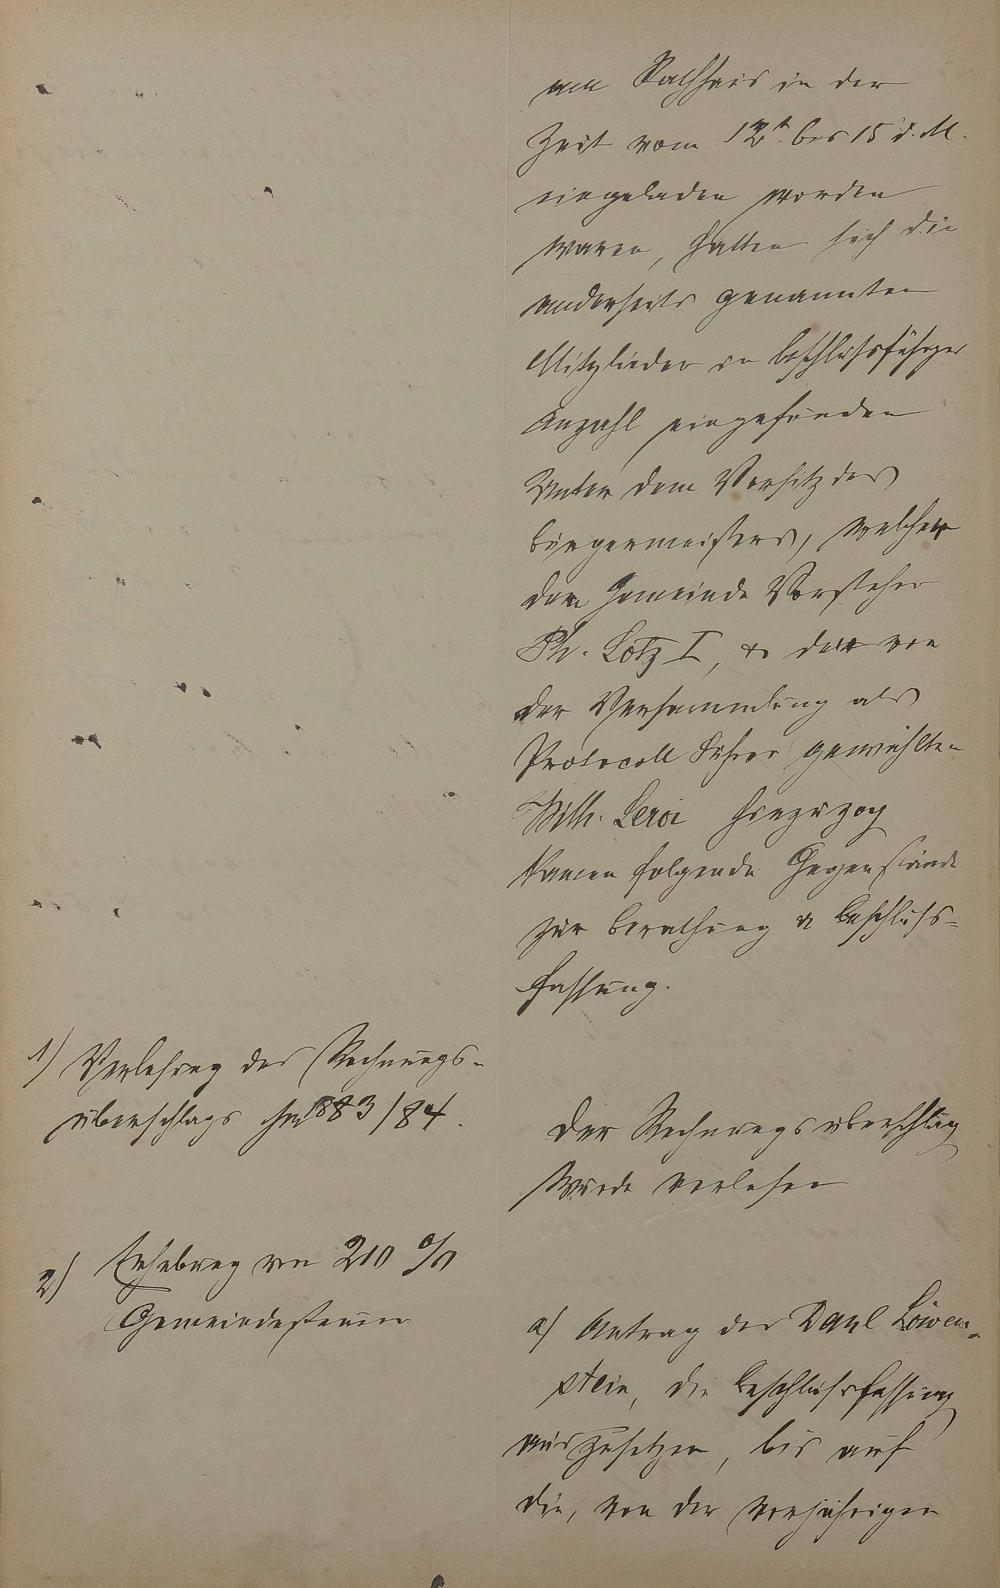 am Rathhaus in der
Zeit vom 12t. bis 15 d. M.
eingeladen worden
waren, hatten sich die
anderseits genannten
Mitglieder in beschlußfähiger
Anzahl eingefunden
Unter dem Vorsitz des
Bürgermeisters, welcher
den Gemeinde Vorsteher
Ph. Lotz I, & den von
der Versammlung als
Protocoll Führer gewählten
Wilh. Leroi hinzuzog
kamen folgende Gegenstände
zur Berathung u Beschluß-
fassung.
1) Verlesung des Rechnungs-
überschlags pro 1883/84.
Der Rechnungsüberschlag
wurde verlesen
2) Erhebung von 210 %
Gemeindesteuern
a) Antrag des Danl Löwen-
stein, die Beschlußfassung
auszusetzen, bis auf
die, von der vorjährigen